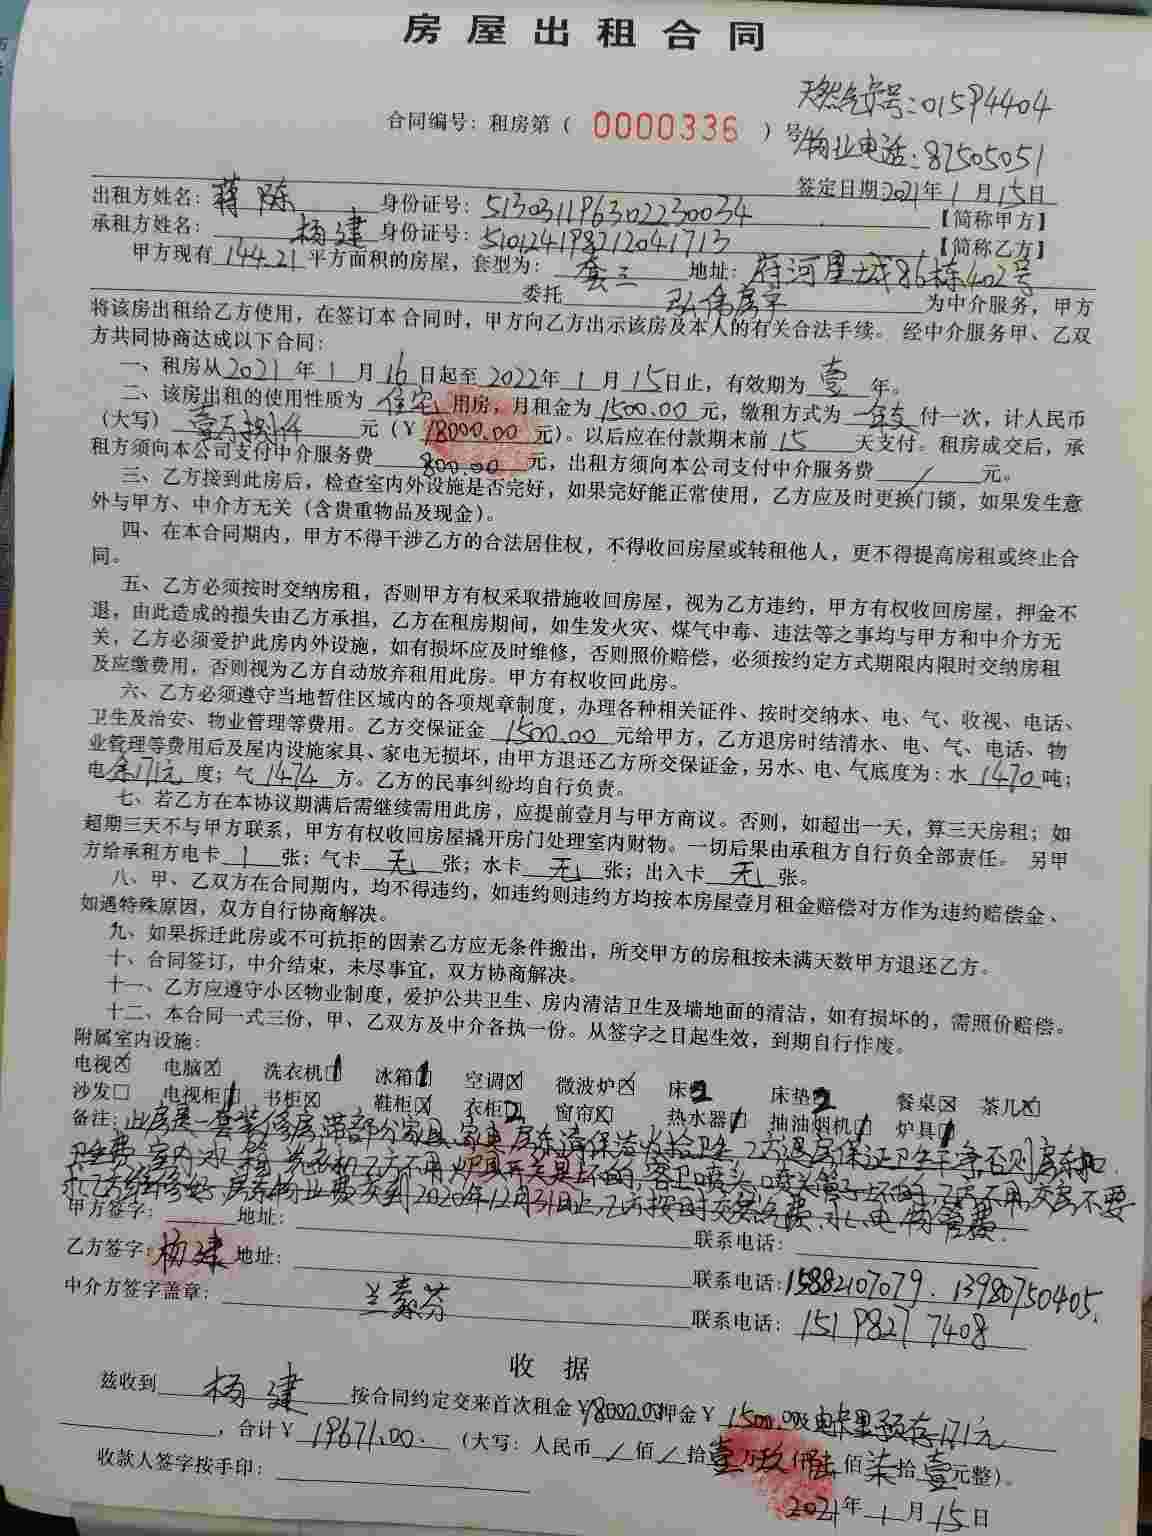 房屋出租合同
天然气户号:01594404
合同编号:租房第( 0000336 )号
物业电话:87505051
签定日期:2021年1月15日
出租方姓名:蒋陈 身份证号:513031196302230034 【简称甲方】
承租方姓名:杨建 身份证号:510124198212041713 【简称乙方】
甲方现有144.21平方面积的房屋,套型为:套三 地址:府河星城86栋402号
委托 弘伟房产 为中介服务,甲方
将该房出租给乙方使用,在签订本合同时,甲方向乙方出示该房及本人的有关合法手续。经中介服务甲、乙双
方共同协商达成以下合同:
一、租房从2021年1月16日起至2022年1月15日止,有效期为壹年。
二、该房出租的使用性质为住宅用房,月租金为1500.00元,缴租方式为年支付一次,计人民币
(大写)壹万捌仟元(¥18000.00元)。以后应在付款期末前15天支付。租房成交后,承
租方须向本公司支付中介服务费800.00元,出租方须向本公司支付中介服务费/元。
三、乙方接到此房后,检查室内外设施是否完好,如果完好能正常使用,乙方应及时更换门锁,如果发生意
外与甲方、中介方无关(含贵重物品及现金)。
四、在本合同期内,甲方不得干涉乙方的合法居住权,不得收回房屋或转租他人,更不得提高房租或终止合
同。
五、乙方必须按时交纳房租,否则甲方有权采取措施收回房屋,视为乙方违约,甲方有权收回房屋,押金不
退,由此造成的损失由乙方承担,乙方在租房期间,如生发火灾、煤气中毒、违法等之事均与甲方和中介方无
关,乙方必须爱护此房内外设施,如有损坏应及时维修,否则照价赔偿,必须按约定方式期限内限时交纳房租
及应缴费用,否则视为乙方自动放弃租用此房。甲方有权收回此房。
六、乙方必须遵守当地暂住区域内的各项规章制度,办理各种相关证件、按时交纳水、电、气、收视、电话、
卫生及治安、物业管理等费用。乙方交保证金1500.00元给甲方,乙方退房时结清水、电、气、电话、物
业管理等费用后及屋内设施家具、家电无损坏,由甲方退还乙方所交保证金,另水、电、气底度为:水1470吨;
电余171元度;气1474方。乙方的民事纠纷均自行负责。
七、若乙方在本协议期满后需继续需用此房,应提前壹月与甲方商议。否则,如超出一天,算三天房租;如
超期三天不与甲方联系,甲方有权收回房屋撬开房门处理室内财物。一切后果由承租方自行负全部责任。 另甲
方给承租方电卡1张;气卡无张;水卡无张;出入卡无张。
八、甲、乙双方在合同期内,均不得违约,如违约则违约方均按本房屋壹月租金赔偿对方作为违约赔偿金、
如遇特殊原因,双方自行协商解决。
九、如果拆迁此房或不可抗拒的因素乙方应无条件搬出,所交甲方的房租按未满天数甲方退还乙方。
十、合同签订,中介结束,未尽事宜,双方协商解决。
十一、乙方应遵守小区物业制度,爱护公共卫生、房内清洁卫生及墙地面的清洁,如有损坏的,需照价赔偿。
十二、本合同一式三份,甲、乙双方及中介各执一份。从签字之日起生效,到期自行作废。
附属室内设施:
电视☒ 电脑☒ 洗衣机1 冰箱1 空调☒ 微波炉☒ 床2 床垫2 餐桌☒ 茶几☒
沙发□ 电视柜1 书柜☒ 鞋柜☒ 衣柜2 窗帘☒ 热水器1 抽油烟机1 炉具1
备注:此房是一套装修房,带部分家具、家电,房东请保洁收拾卫生,乙方退房保证卫生干净否则房东扣
卫生费,室内冰箱,洗衣机乙方不用,炉具开关是坏的,客卫喷头,喷头管子坏的,乙方不用,交房不要
求乙方维修好,房东物业费交到2020年12月31日止,乙方按时交天然气费、水、电、物管费.
甲方签字: 地址: 联系电话:
乙方签字:杨建 地址: 联系电话:15882107079.13980750405.
中介方签字盖章:兰素芬 联系电话:15198277408
收据
兹收到杨建按合同约定交来首次租金¥18000.00押金¥1500.00及电卡里预存171元
,合计¥19671.00.(大写:人民币/佰/拾壹万玖仟陆佰柒拾壹元整)。
收款人签字按手印:
2021年1月15日